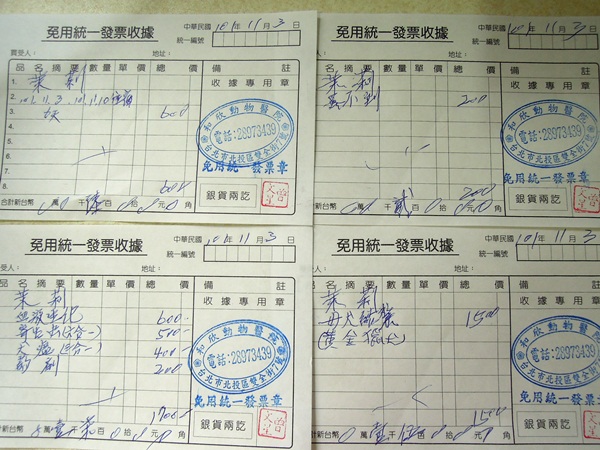 免用統一發票收據
中華民國 101 年 11 月 3 日
統一編號
買受人: 地址:
品名 摘要 數量 單價 總價 備註
收據專用章
1. 茉莉
2. 101.11.3
3. 600
4.
5.
6.
7.
8. 600
和欣動物醫院
電話:28973439
台北市北投區雙全街7號
免用統一發票章
銀貨兩訖
合計新台幣 0 萬 0 千 陸 百 0 拾 0 元 0 角
免用統一發票收據
中華民國 101 年 11 月 3 日
統一編號
買受人: 地址:
品名 摘要 數量 單價 總價 備註
收據專用章
茉莉
200
200
和欣動物醫院
電話:28973439
台北市北投區雙全街7號
免用統一發票章
銀貨兩訖
合計新台幣 0 萬 0 千 貳 百 0 拾 0 元 0 角
免用統一發票收據
中華民國 101 年 11 月 3 日
統一編號
受人: 地址:
品名 摘要 數量 單價 總價 備註
收據專用章
茉莉
血液生化 600-
500-
400-
200
1700-
和欣動物醫院
電話:28973439
台北市北投區雙全街7號
免用統一發票章
銀貨兩訖
計新台幣 0 萬 壹 千 柒 百 0 拾 0 元 0 角
免用統一發票收據
中華民國 101 年 11 月 3 日
統一編號
受人: 地址:
品名 摘要 數量 單價 總價 備註
收據專用章
茉莉
母犬結紮 1500
(黃金獵犬)
1500
和欣動物醫院
電話:28973439
台北市北投區雙全街7號
免用統一發票章
銀貨兩訖
計新台幣 0 萬 壹 千 伍 百 0 拾 0 元 0 角